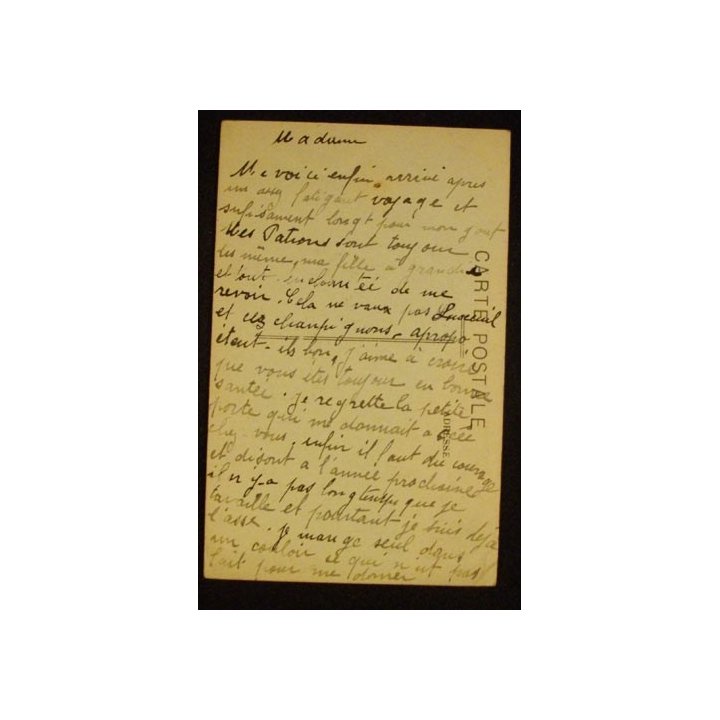 Madame
Me voici enfin arrivé apres
un assez fatigant voyage et
sufisament longt pour mon gout
Mes Patrons sont toujour
les même, ma fille a grandie
et tout enchantée de me
revoir. Cela ne vaux pas Luxeuil
et ces chanpignons, apropo
étent-ils bon, j'aime à croire
que vous etes toujour en bonne
santée. je regrette la petite
porte qui me donnait accée
chez-vous, enfin il faut du courage
et disont a l'année prochaine
il n'y-a pas longtemps que je
travaille et pourtant je suis déja
lasse. je mange seul dans
un couloir ce qui n'est pas
fait pour me donner
CARTE POSTALE
ADRESSE